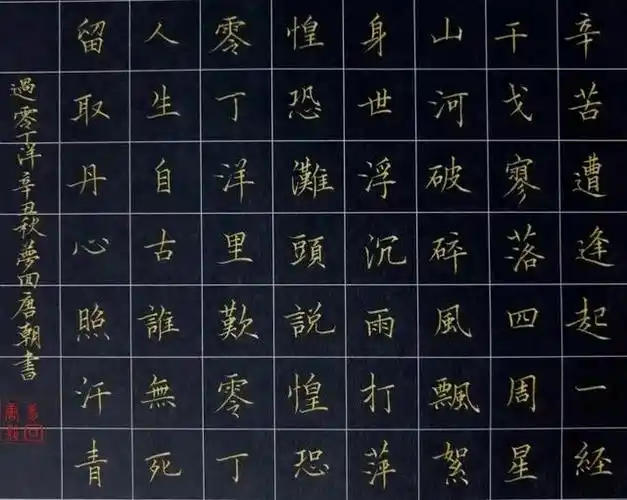 辛苦遭逢起一経
干戈寥落四周星
山河破碎風飄絮
身世浮沉雨打萍
惶恐灘頭說惶恐
零丁洋里歎零丁
人生自古誰無死
留取丹心照汗青
過零丁洋辛丑秋夢回唐朝書